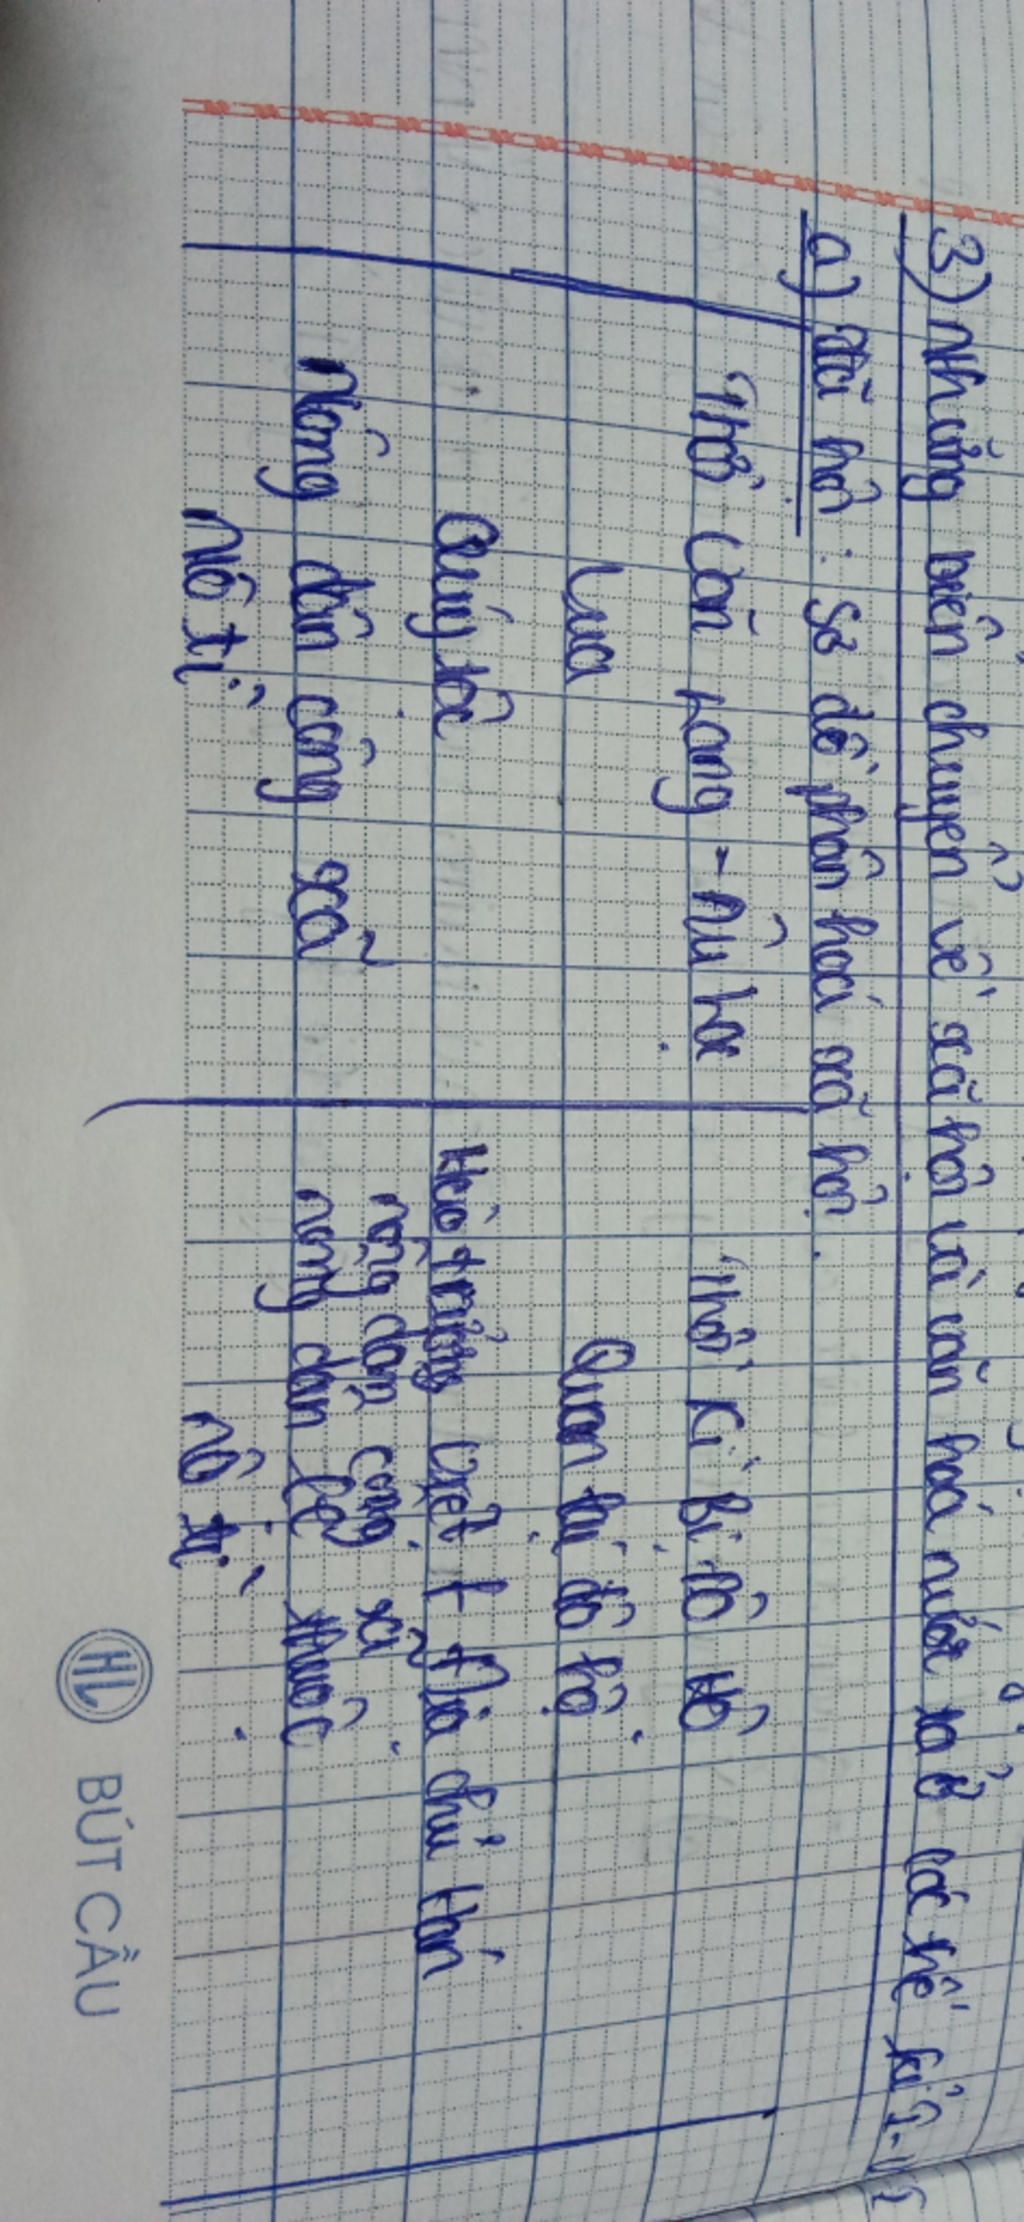 3) Những biến chuyển về xã hội và văn hoá nước ta ở các thế kỉ I-VI
a) Xã hội : Sơ đồ phân hoá xã hội.
Thời Văn Lang - Âu Lạc
Thời kì bị đô hộ
Vua
Quan lại đô hộ
Quý tộc
Hào trưởng Việt + địa chủ Hán
Nông dân công xã
nông dân công xã
nông dân lệ thuộc
Nô tì
Nô tì
HL BÚT CẦU